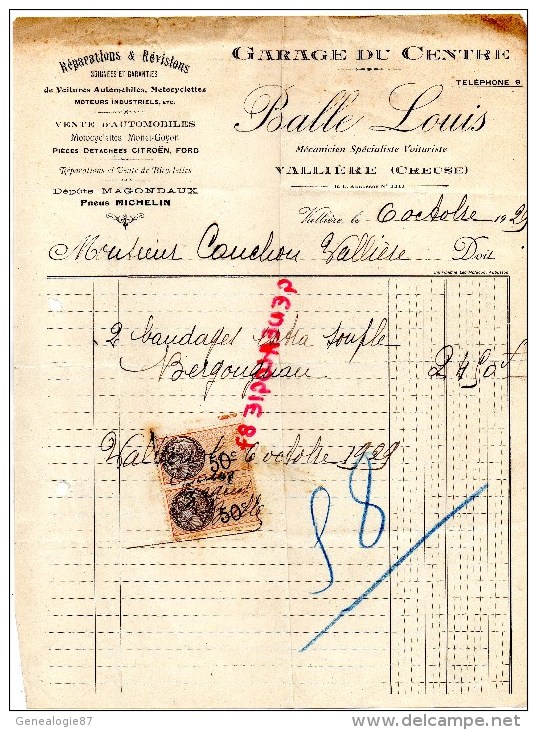 Réparations & Révisions
SOIGNÉES ET GARANTIES
de Voitures Automobiles, Motocyclettes
MOTEURS INDUSTRIELS, ETC.
VENTE D'AUTOMOBILES
Motocyclettes Monet-Goyon
PIÈCES DÉTACHÉES CITROËN, FORD
Réparations et Vente de Bicyclettes
Dépôts MAGONDAUX
Pneus MICHELIN
GARAGE DU CENTRE
TÉLÉPHONE 9
Ballé Louis
Mécanicien Spécialiste Voituriste
VALLIÈRE (CREUSE)
Vallière, le 6 octobre 1929
Monsieur Cauchon Vallière Doit
2 bandages extra souple
Bergougnan 24,50
Vallière le 6 octobre 1929
50c
50c
58
f8 31pp3vendeur
Genealogie87
delcampe.net